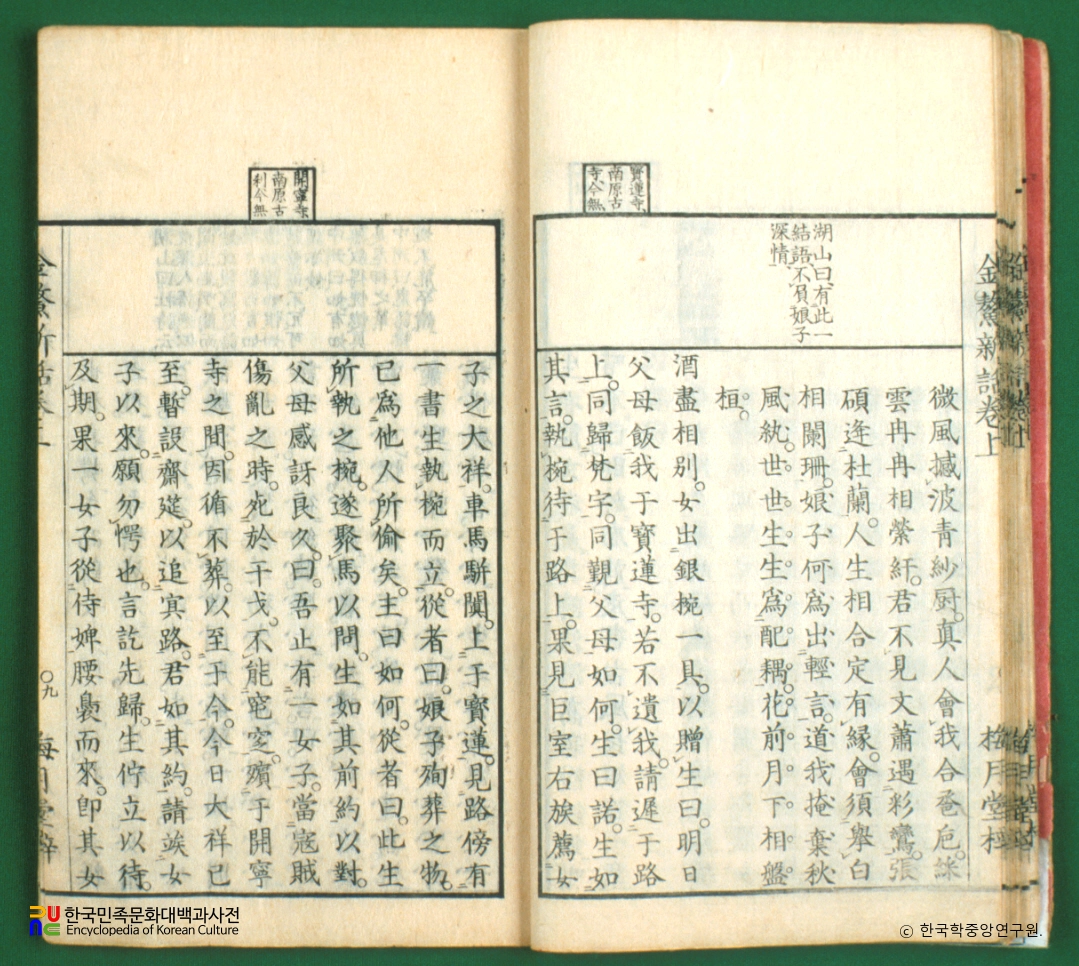 金鰲新話卷上
微風撼波青紗厨。真人會我合卺巵。
雲冉冉相縈紆。君不見文蕭遇彩鸞。張
碩逢杜蘭。人生相合定有緣。會須舉白
相闌珊。娘子何爲出輕言。道我掩棄秋
風紈。世世生生爲配耦。花前月下相盤
桓。
湖山曰有此一
結語不負娘子
深情
酒盡相別。女出銀椀一具。以贈生曰。明日
父母飯我于寶蓮寺。若不遺我。請遲于路
寶蓮寺
南原古
寺今無
上。同歸梵宇。同覲父母如何。生曰諾。生如
其言。執椀待于路上。果見巨室右族薦女
子之大祥。車馬騈闐。上于寶蓮。見路傍有
一書生執椀而立。從者曰。娘子殉葬之物。
已爲他人所偷矣。主曰如何。從者曰。此生
所執之椀。遂聚馬以問。生如其前約以對。
父母感訝良久。曰。吾止有一女子。當寇賊
傷亂之時。死於干戈。不能窀穸。殯于開寧
開寧寺
南原古
刹今無
寺之間。因循不葬。以至于今。今日大祥已
至。暫設齋筵。以追冥路。君如其約。請竢女
子以來。願勿愕也。言訖先歸。生佇立以待。
及期。果一女子從侍婢腰裊而來。卽其女
九
한국민족문화대백과사전
Encyclopedia of Korean Culture
© 한국학중앙연구원.